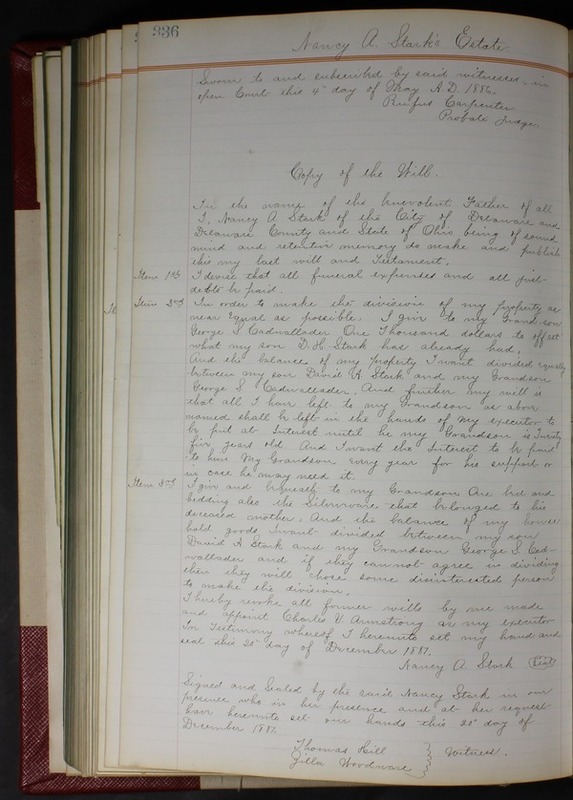 336
Nancy A. Stark's Estate.
Sworn to and subscribed by said witnesses in
open Court this 4" day of May A.D. 1886.
Rufus Carpenter
Probate Judge.
Copy of the Will.
In the name of the benevolent Father of all
I, Nancy A Stark of the City of Delaware and
Delaware County and State of Ohio being of sound
mind and retentive memory do make and publish
this my last will and Testament.
Item 1st I devise that all funeral expenses and all just
debts be paid.
Item 2nd In order to make the division of my property as
near Equal as possible. I give to my Grand-son
George S Cadwallader One Thousand dollars to offset
what my son D. H. Stark has already had.
And the balance of my property I want divided equally
between my son David H. Stark and my Grandson
George S. Cadwallader. And further my will is
that all I have left to my Grandson as above
named shall be left in the hands of my executor to
be put at Interest until he my Grandson is Twenty
five years old. And I want the Interest to be paid
to him My Grandson every year for his support or
in case he may need it.
Item 3rd I give and bequeath to my Grandson One bed and
bedding also the Silverware that belonged to his
deceased mother. And the balance of my house
hold goods I want divided between my son
David H Stark and my Grandson George S. Cad-
wallader and if they cannot agree in dividing
then they will chose some disinterested person
to make the division.
I hereby revoke all former wills by me made
and appoint Charles V Armstrong as my executor
In Testimony whereof I hereunto set my hand and
seal this 20" day of December 1881.
Nancy A. Stark (Seal)
Signed and Sealed by the said Nancy Stark in our
presence who in her presence and at her request
have hereunto set our hands this 20" day of
December 1881.
Thomas Hill
Zilla Woodware } Witness.